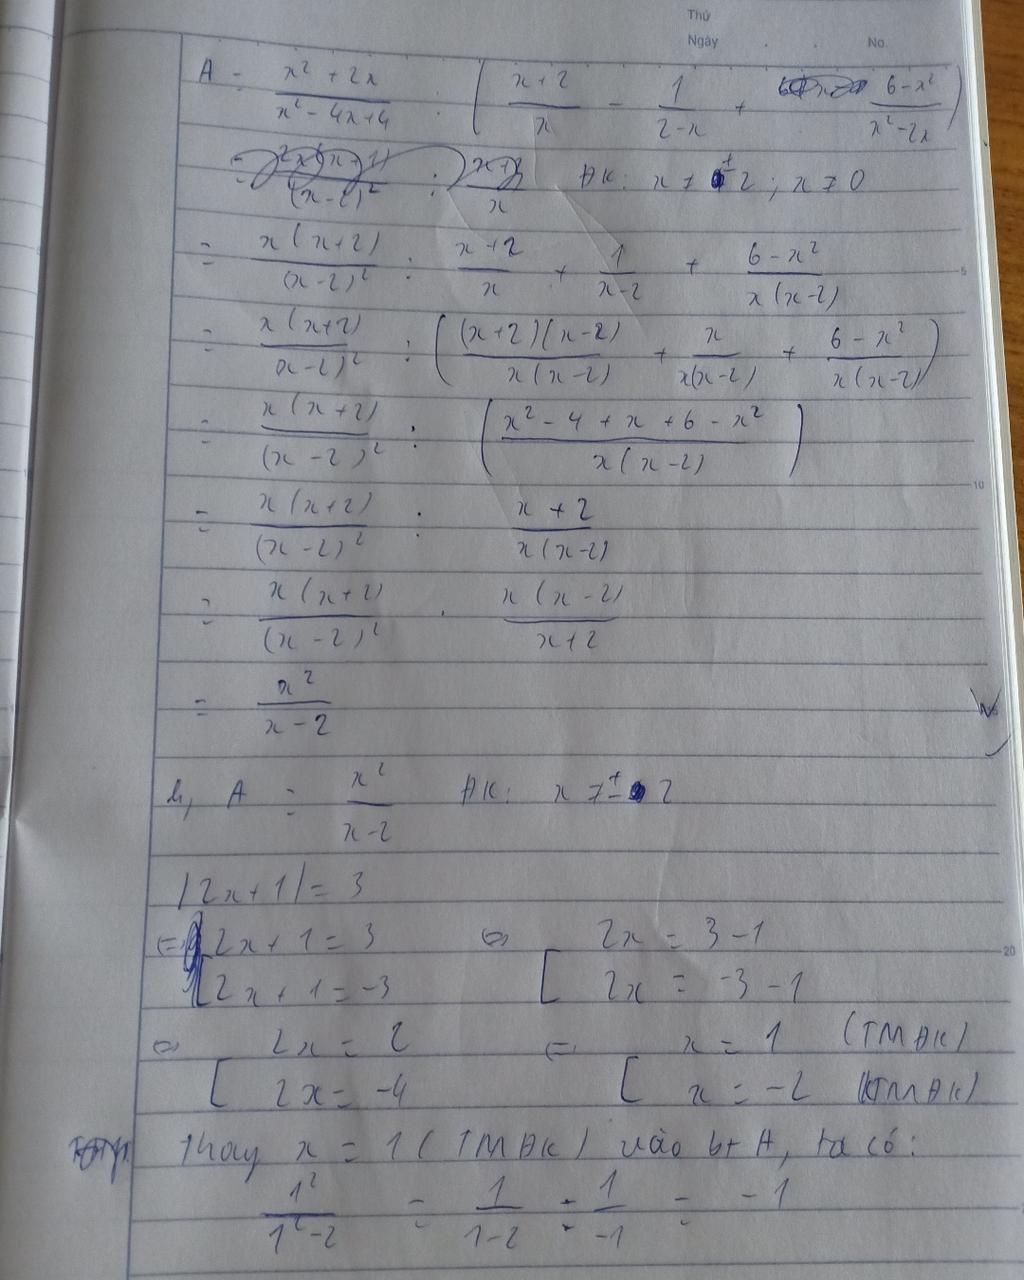 Thứ
Ngày . . No.
A = \frac{x² + 2x}{x² - 4x + 4} : ( \frac{x+2}{x} - \frac{1}{2-x} + \frac{6-x²}{x²-2x} )
ĐK: x ≠ ± 2 ; x ≠ 0
= \frac{x(x+2)}{(x-2)²} : \frac{x+2}{x} + \frac{1}{x-2} + \frac{6-x²}{x(x-2)}
5
= \frac{x(x+2)}{(x-2)²} : ( \frac{(x+2)(x-2)}{x(x-2)} + \frac{x}{x(x-2)} + \frac{6-x²}{x(x-2)} )
= \frac{x(x+2)}{(x-2)²} : ( \frac{x² - 4 + x + 6 - x²}{x(x-2)} )
10
= \frac{x(x+2)}{(x-2)²} : \frac{x+2}{x(x-2)}
= \frac{x(x+2)}{(x-2)²} . \frac{x(x-2)}{x+2}
= \frac{x²}{x-2}
b, A = \frac{x²}{x-2} ĐK: x ≠ ± 2
|2x+1| = 3
⇔ [ 2x+1 = 3 ⇔ [ 2x = 3-1
2x+1 = -3 2x = -3-1
20
⇔ [ 2x = 2 ⇔ [ x = 1 (TMĐK)
2x = -4 x = -2 (KTMĐK)
Thay x = 1 (TMĐK) vào bt A, ta có:
\frac{1²}{1²-2} = \frac{1}{1-2} = \frac{1}{-1} = -1